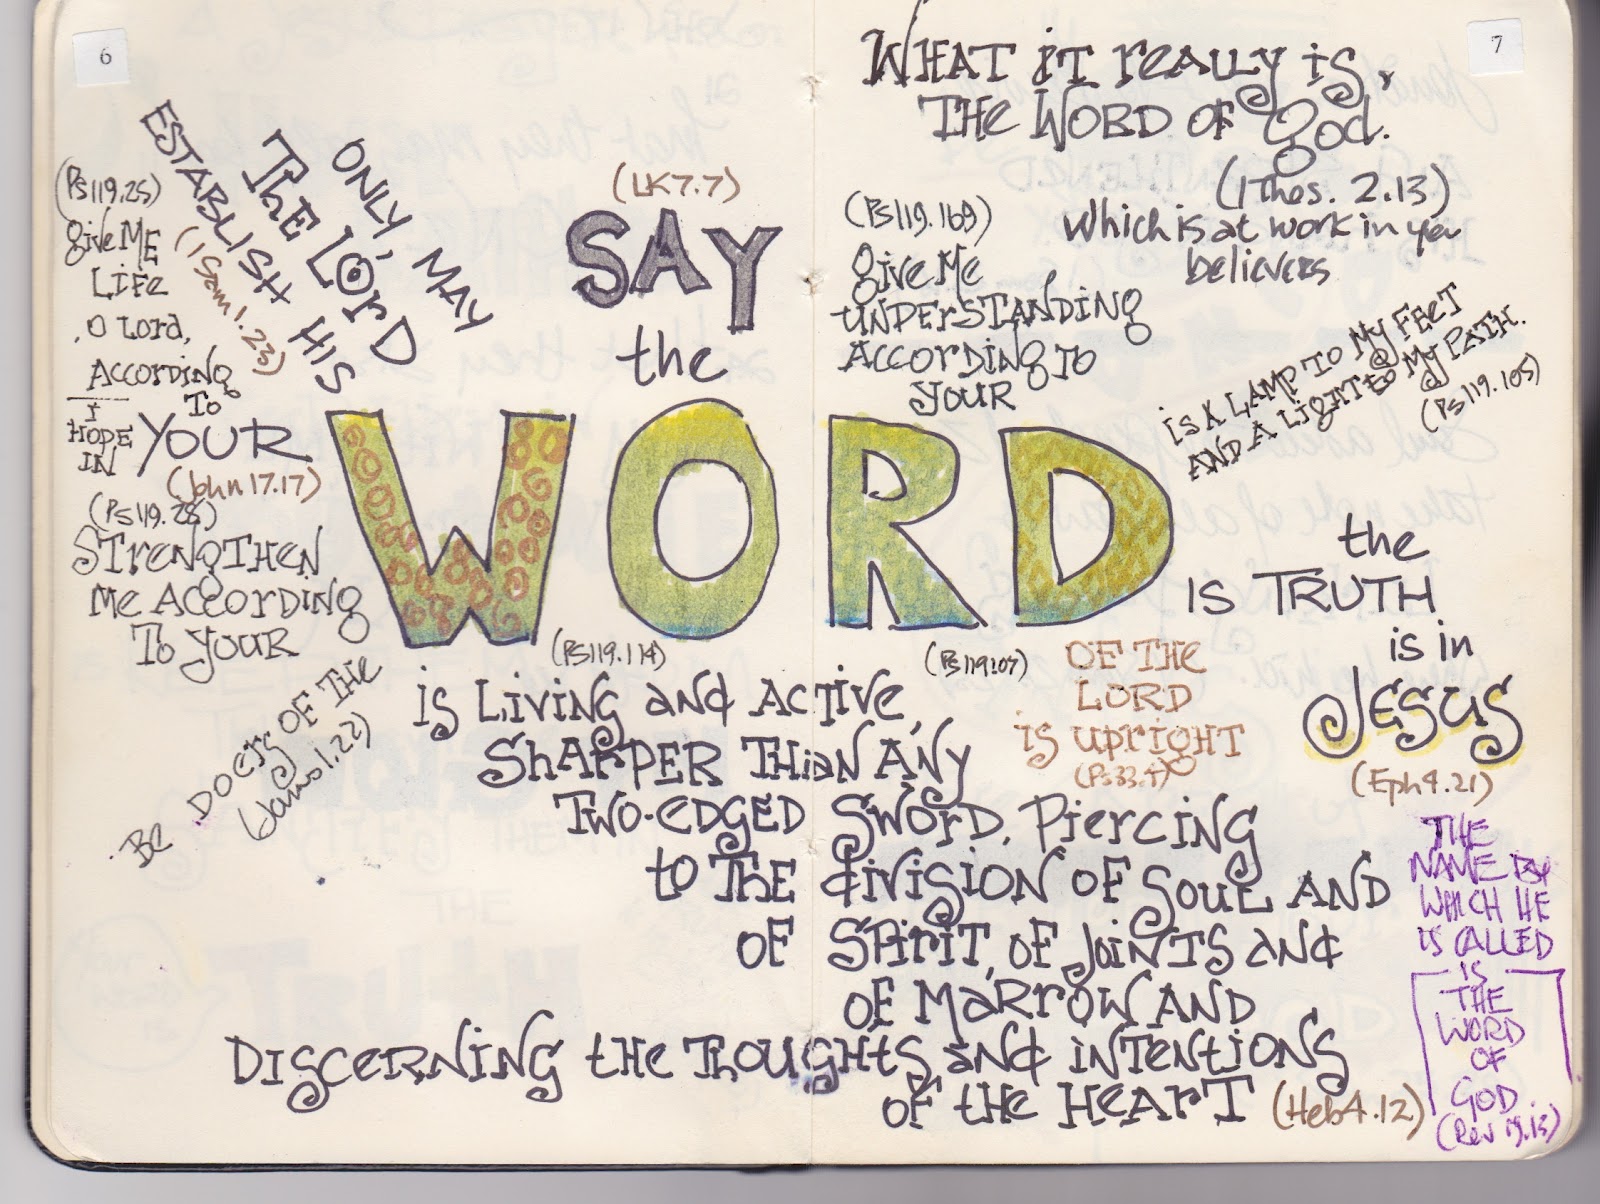 6
ONLY, MAY
THE LORD
ESTABLISH HIS
(1 Sam 1.23)
(Ps 119.25)
give ME
LIFE
O Lord,
ACCORDING
To
I
HOPE
IN
YOUR
(John 17.17)
(Ps 119.28)
STRENGTHEN
Me ACCORDING
To YOUR
BE DOERS OF THE
(James 1.22)
(LK 7.7)
SAY
the
WORD
(Ps 119.114)
is Living and ACTIVE,
SHARPER THAN ANY
TWO-EDGED SWORD, Piercing
to THE division OF SOUL AND
OF SPIRIT, OF JOINTS and
OF MARROW AND
DISCERNING the THOUGHTS and iNTENTIONS
OF the HEART (Heb 4.12)
7
WHAT iT reaLLy is,
THE WORD OF God.
(1 Thes. 2.13)
Which is at work in you
believers
(Ps 119.169)
give Me
UNDERSTANDING
ACCORDING TO
YOUR
is A LAMP TO MY FEET
AND A LIGHT to MY PATH.
(Ps 119.105)
the
IS TRUTH
is in
JESUS
(Eph 4.21)
(Ps 119.107)
OF THE
LORD
is UPRIGHT
(Ps 33.4)
THE
NAME BY
WHICH HE
IS CALLED
IS
THE
WORD
OF
GOD
(Rev 19.13)